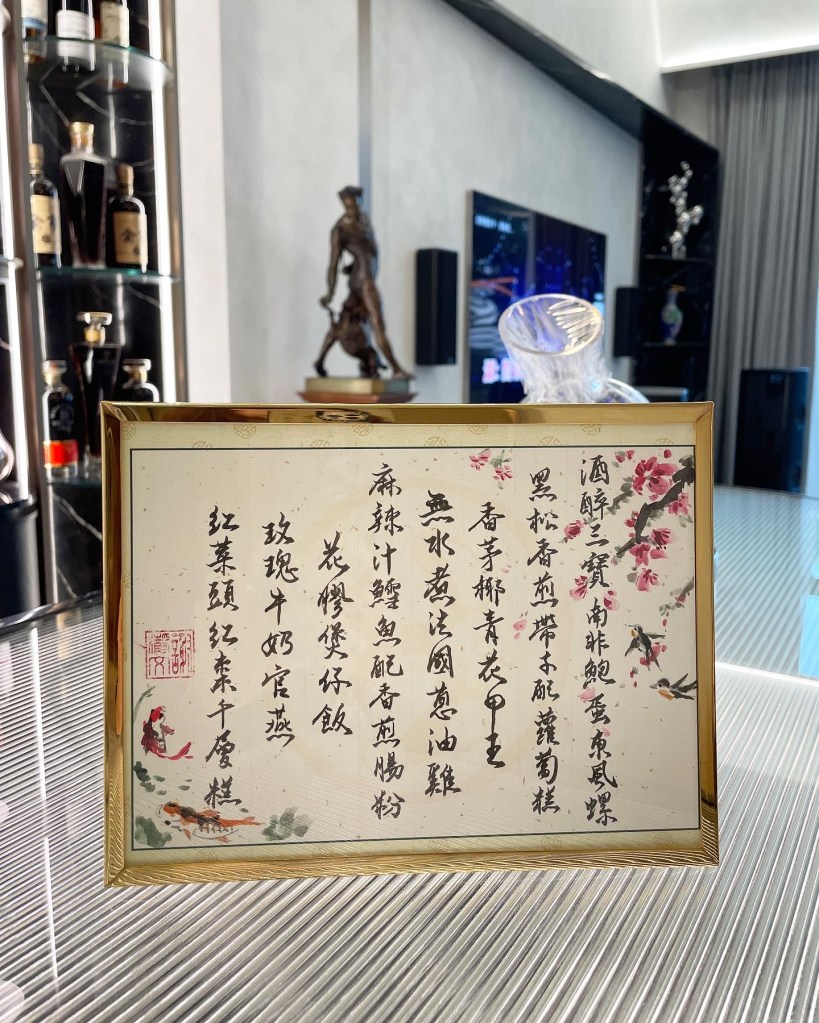 酒醉三寶南非鮑蛋東風螺
黑松香煎帶子配蘿蔔糕
香茅椰青花甲王
無水煮法國蔥油雞
麻辣汁鱈魚配香煎腸粉
花膠煲仔飯
玫瑰牛奶官燕
紅菜頭紅棗千層糕